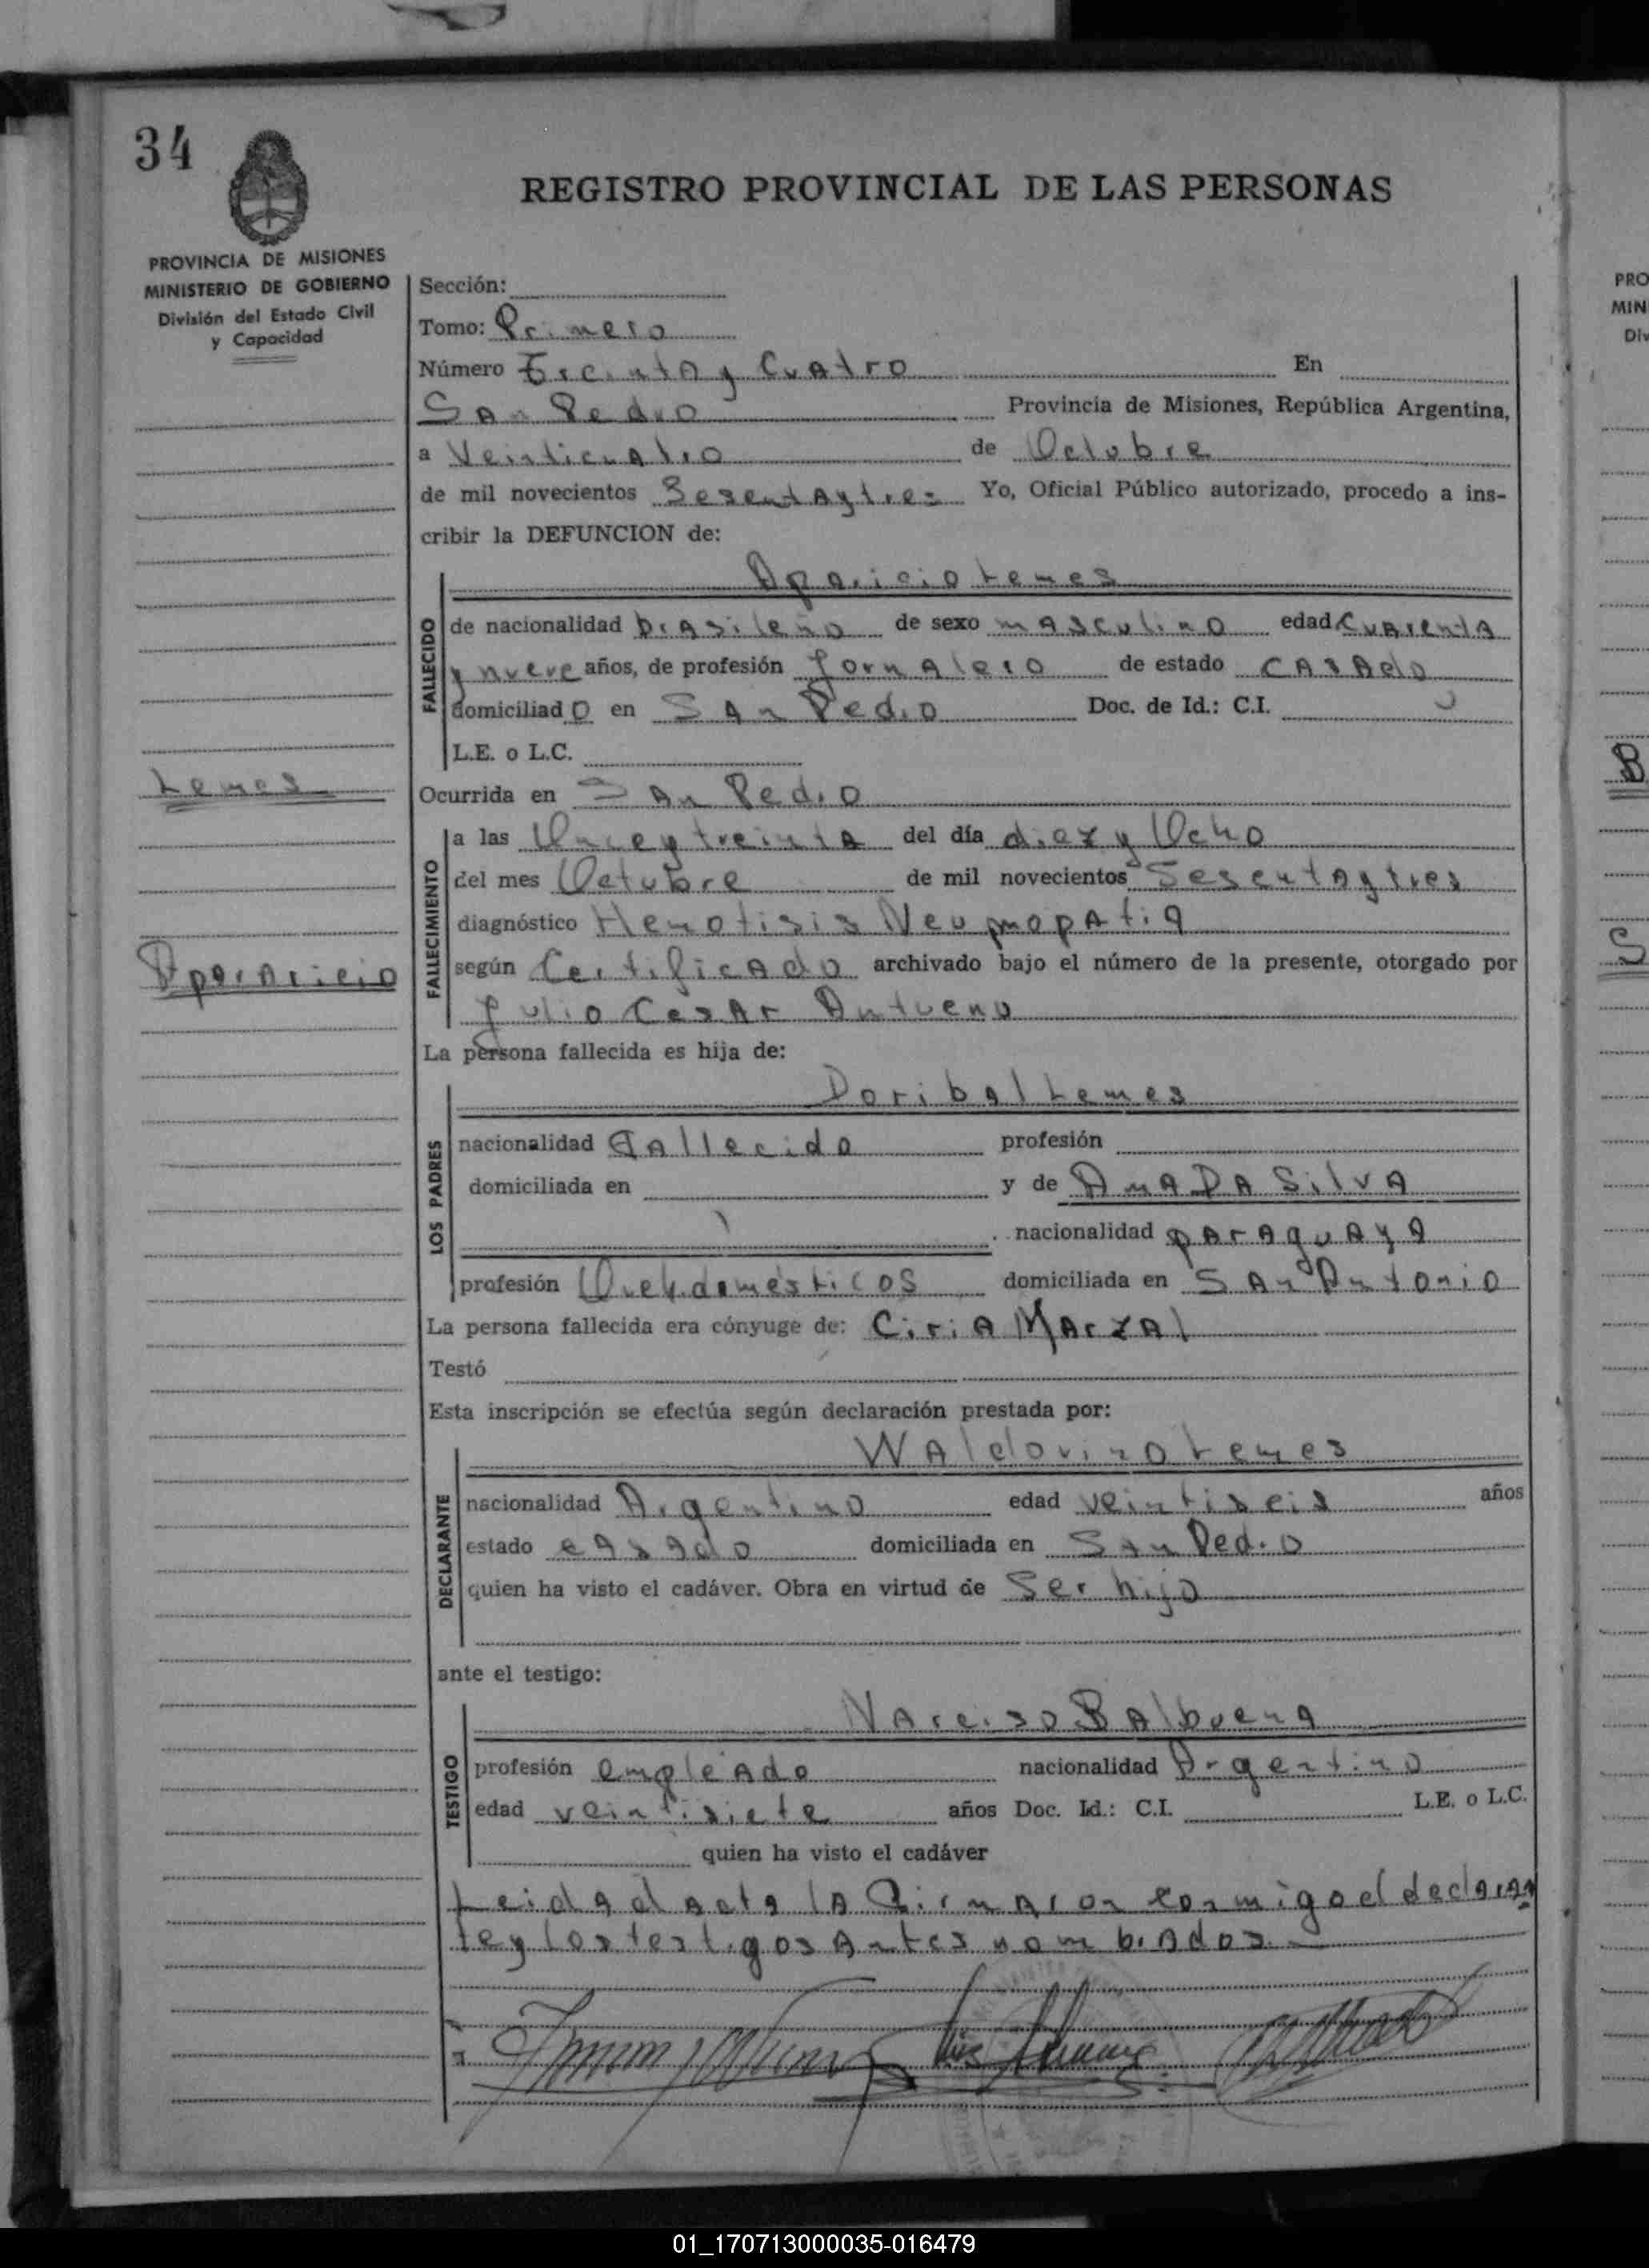 34
REGISTRO PROVINCIAL DE LAS PERSONAS
PROVINCIA DE MISIONES
MINISTERIO DE GOBIERNO
División del Estado Civil
y Capacidad
Sección:
Tomo: Primero
Número Treinta y Cuatro En
San Pedro Provincia de Misiones, República Argentina,
a Veinticuatro de Octubre
de mil novecientos Sesentaytres Yo, Oficial Público autorizado, procedo a ins-
cribir la DEFUNCION de:
Aparicio Lemes
FALLECIDO
de nacionalidad brasileño de sexo masculino edad Cuarenta
y nueve años, de profesión Jornalero de estado casado
domiciliado en San Pedro Doc. de Id.: C.I.
L.E. o L.C.
Lemes
Ocurrida en San Pedro
FALLECIMIENTO
a las Once y treinta del día diez y Ocho
del mes Octubre de mil novecientos Sesentaytres
diagnóstico Hemotisis Neumopatia
Apararicio
según Certificado archivado bajo el número de la presente, otorgado por
Julio Cesar
La persona fallecida es hija de:
Doribal Lemes
LOS PADRES
nacionalidad Fallecido profesión
domiciliada en y de Ana DA Silva
nacionalidad paraguaya
profesión Queh.domésticos domiciliada en San Antonio
La persona fallecida era cónyuge de: Ciria Marzal
Testó
Esta inscripción se efectúa según declaración prestada por:
Waldovino Lemes
DECLARANTE
nacionalidad Argentino edad veintiseis años
estado casado domiciliada en San Pedro
quien ha visto el cadáver. Obra en virtud de Ser hijo
ante el testigo:
Narciso Balbuena
TESTIGO
profesión empleado nacionalidad Argentino
edad veintisiete años Doc. Id.: C.I. L.E. o L.C.
quien ha visto el cadáver
Leida el acta la Firmaron conmigo el declaran
te y los testigos antes nombrados.-
PRO
MIN
Div
B
S
01_170713000035-016479